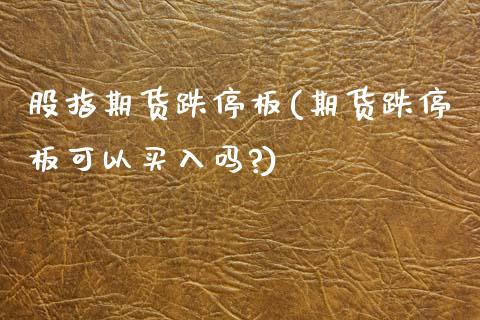 股指期货跌停板(期货跌停
板可以买入吗?)